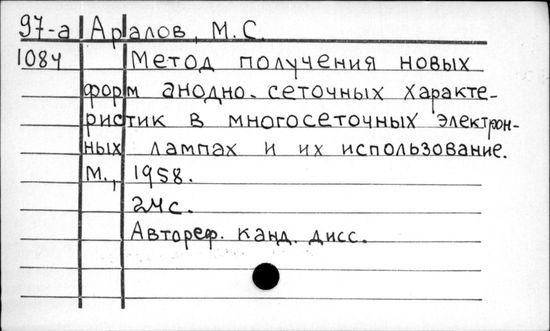 97-а Аралов, М.С.
1084 Метод получения новых
форм анодно-сеточных характе-
ристик в многосеточных электрон-
ных лампах и их использование.
М., 1958.
24с.
Автореф. канд. дисс.